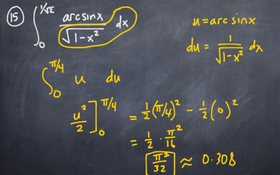 15 ∫₀^{1/√2} arcsin x / √(1-x²) dx
u = arcsin x
du = 1/√(1-x²) dx
∫₀^{π/4} u du
u²/2 ]₀^{π/4} = ½(π/4)² - ½(0)²
= ½ · π²/16
π²/32 ≈ 0.308